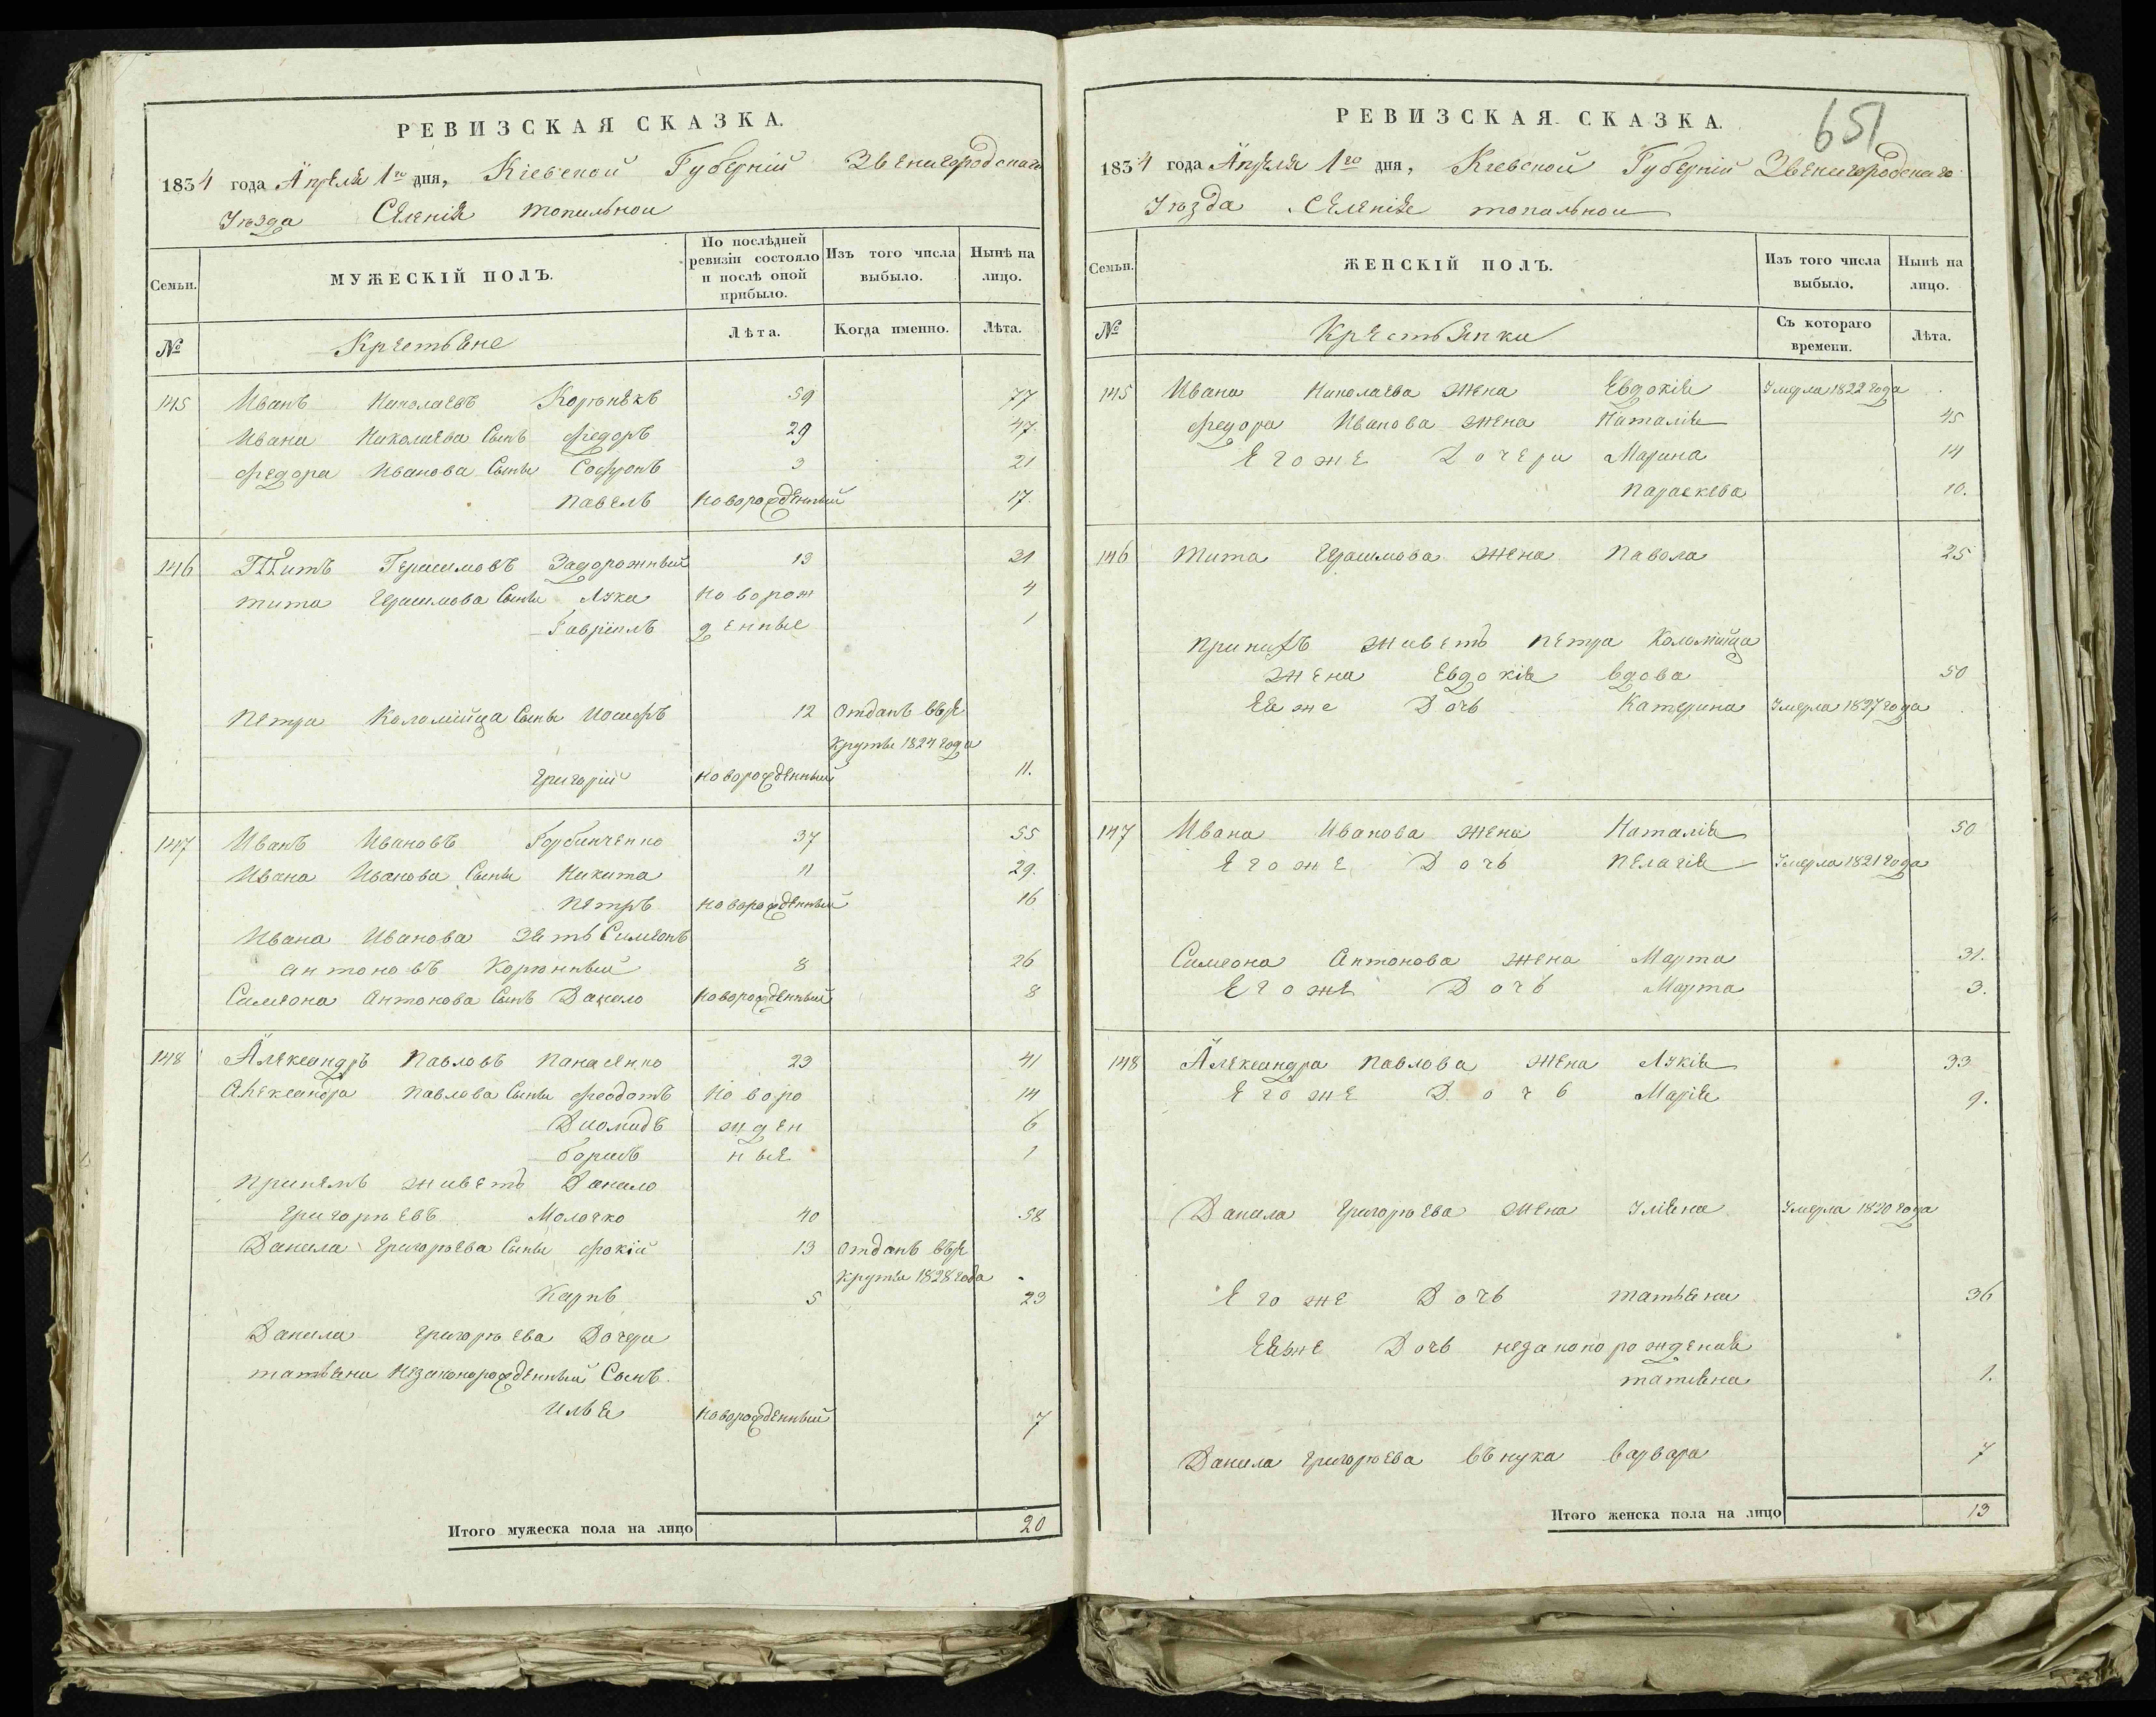 РЕВИЗСКАЯ СКАЗКА.
1834 года Апреля 1го дня, Кіевской Губерніи Звенигородскаго
Уѣзда Селенія топильной
Семьи.
МУЖЕСКІЙ ПОЛЪ.
По послѣдней ревизіи состояло и послѣ оной прибыло.
Изъ того числа выбыло.
Нынѣ на лицо.
№
Крестьяне
Лѣта.
Когда именно.
Лѣта.
145 Иванъ Николаевъ 59 77
Ивана Николаева Сынъ Федоръ 29 47.
Федора Иванова Сыны Софронъ 3 21
Павелъ Новорожденный 17.
146 Титъ Герасимовъ Задорожный 13 31
Тита Герасимова Сыны Лука Новорож 4
Гавріилъ денные 1
Петра Коломійца Сыны Иосифъ 12 Отданъ въ ре
круты 1824 года
Григорій Новорожденный 11.
147 Иванъ Ивановъ Горбинченко 37 55
Ивана Иванова Сыны Никита 11 29.
Петръ Новорожденный 16
Ивана Иванова Зять Симеонъ
Антоновъ 8 26
Симеона Антонова Сынъ Данило Новорожденный 8
148 Александръ Павловъ Панасенко 23 41
Александра Павлова Сыны Феодотъ Новоро 14
Диомидъ жден 6
Борисъ ные 1
Принятъ живетъ Данило
Григорьевъ Молочко 40 58
Данила Григорьева Сыны Фокій 13 Отданъ въ ре
круты 1828 года
Карпъ 5 23
Данила Григорьева Дочери
татьяны Незаконорожденный Сынъ.
Илья Новорожденный 7
Итого мужеска пола на лицо 20
651
РЕВИЗСКАЯ СКАЗКА.
1834 года Апреля 1го дня, Кіевской Губерніи Звенигородскаго
Уѣзда Селенія топильной
Семьи.
ЖЕНСКІЙ ПОЛЪ.
Изъ того числа выбыло.
Нынѣ на лицо.
№
Крестьянки
Съ котораго времени.
Лѣта.
145 Ивана Николаева жена Евдокія Умерла 1822 года
Федора Иванова жена Наталія 45
Егоже Дочери Марина 14
Параскева 10.
146 Тита Герасимова жена Павола 25
Принихъ живетъ Петра Коломійца
жена Евдокія вдова 50
Еяже Дочь Катерина Умерла 1827 года
147 Ивана Иванова жена Наталія 50
Егоже Дочь Пелагія Умерла 1821 года
Симеона Антонова жена Марта 31.
Егоже Дочь Марта 3.
148 Александра Павлова жена Лукія 33
Егоже Дочь Марія 9.
Данила Григорьева жена Уліяна Умерла 1820 года
Егоже Дочь татьяна 36
Еяже Дочь незаконорожденая
татіяна 1.
Данила Григорьева внука Варвара 7
Итого женска пола на лицо 13